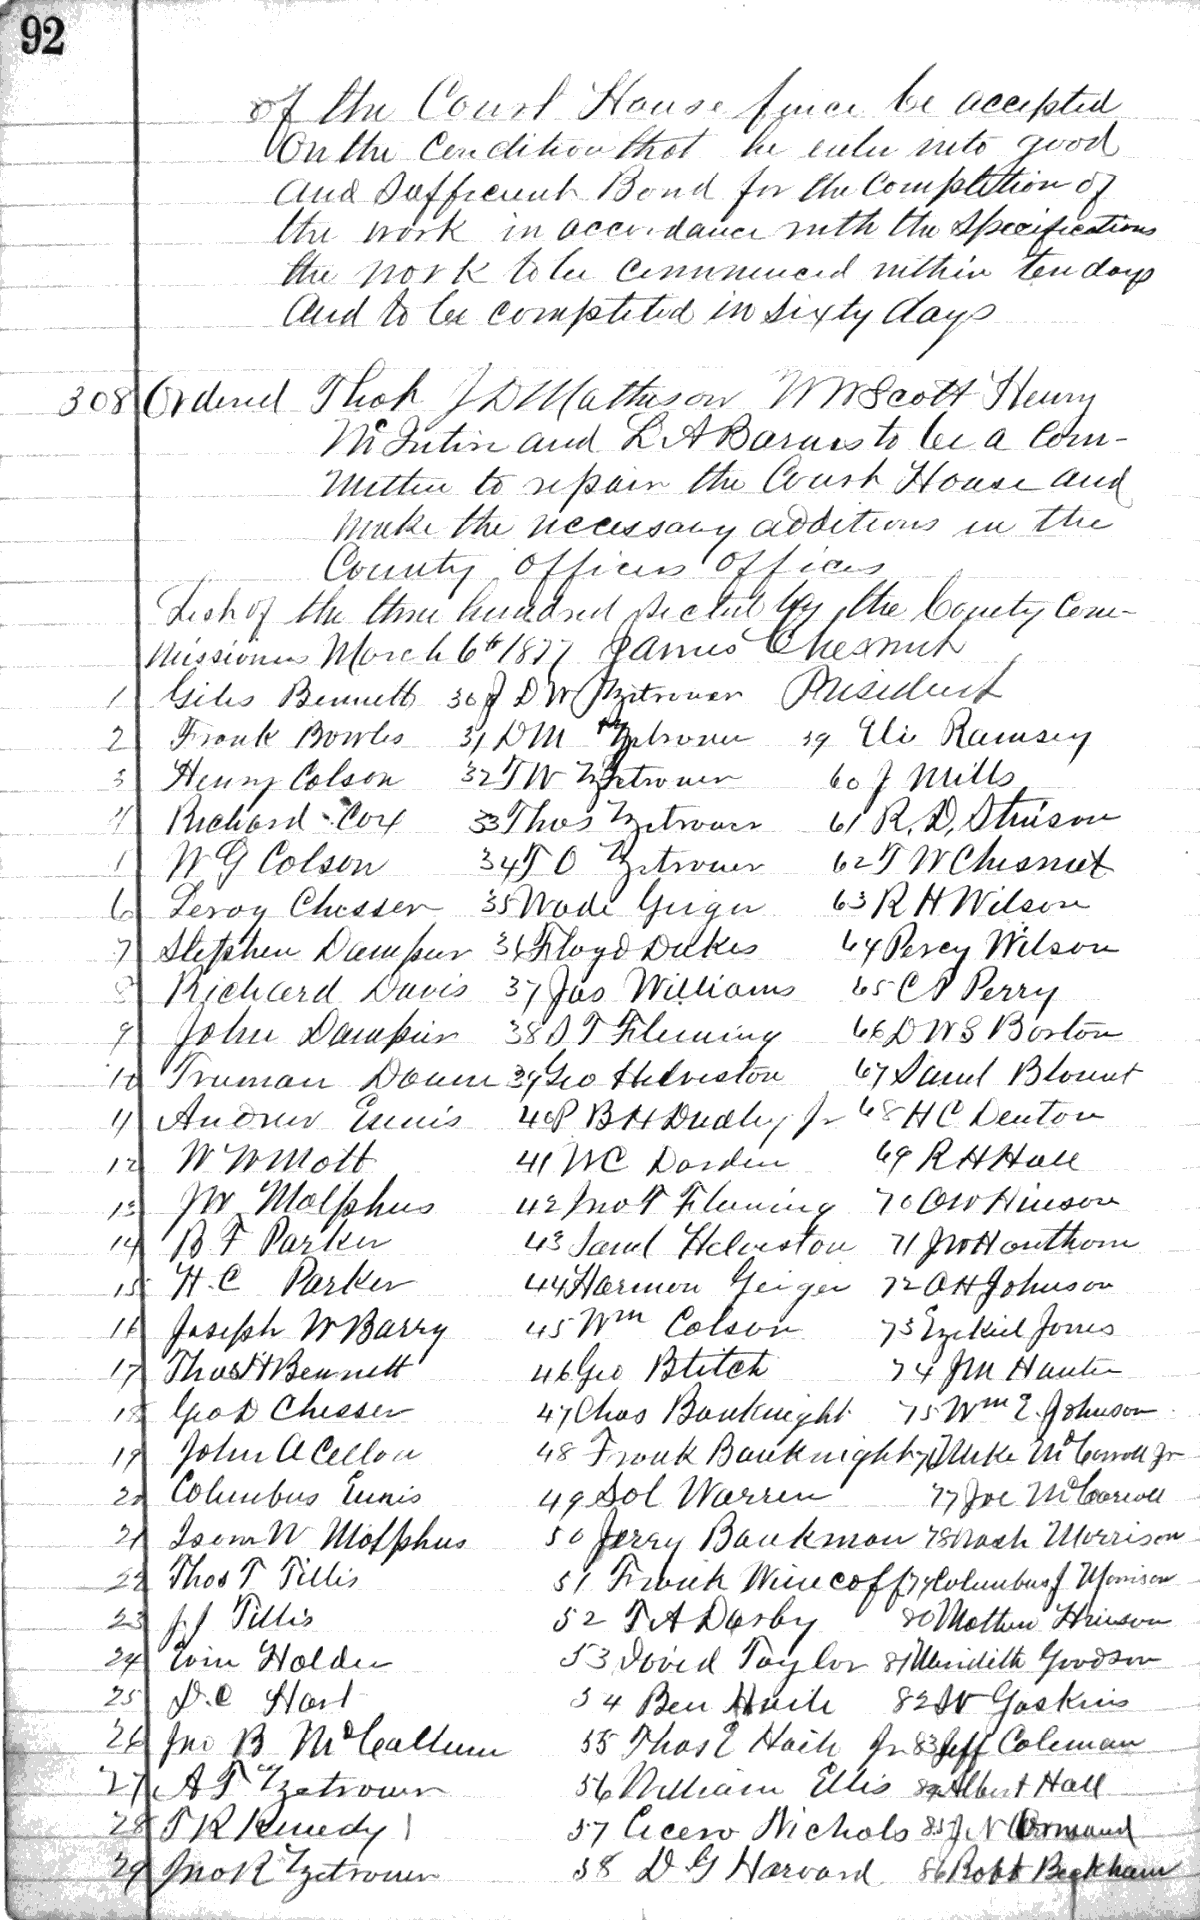 92
of the Court House fence be accepted
On the Condition that he enter into good
and Sufficient Bond for the Completion of
the work in accordance with the Specifications
the work to be commenced within ten days
and to be completed in sixty days
308 Ordered That J D Matheson W W Scott Henry
and L A Barnes to be a Com-
mittee to repair the Court House and
make the necessary additions in the
County Officers Offices
List of the three hundred by the County Com-
missioners March 6th 1877 James Chesnut
1 Giles Bennett 30 J D W Tzetrouer President
2 Frank Bowles 31 D M Tzetrouer 59 Eli Ramsey
3 Henry Colson 32 T W Tzetrouer 60 J Mills
4 Richard Cox 33 Thos Tzetrouer 61 R. D. Stinson
W G Colson 34 T O Tzetrouer 62 T W Chesnut
6 Leroy Chesser 35 Wade Geiger 63 R H Wilson
7 Stephen Dampier 36 Floyd Dukes 64 Percy Wilson
8 Richard Davis 37 Jas Williams 65 C P Perry
9 John Dampier 38 T Fleming 66 D W S Borton
10 Truman 39 Geo Helveston 67 Saml Blount
11 Andrew Ennis 40 P B H Dudley Jr 68 H C Denton
12 W W Mott 41 W C Dorden 69 R H Hall
13 Malphus 42 Jno T Fleming 70 O W Hinson
14 B F Parker 43 Saml Helveston 71 J W Hawthorn
15 H. C Parker 44 Harmon Geiger 72 O H Johnson
16 Joseph W Barry 45 Wm Colson 73 Ezekiel Jones
17 Thos H Bennett 46 Geo Blitch 74 J M Hunter
18 Geo D Chesser 47 Chas Bauknight 75 Wm E. Johnson
19 John A Cellon 48 Frank Bauknight 76 Mike McCarroll Jr
20 Columbus Ennis 49 Sol Warren 77 Joe McCarroll
21 Isom W Malphus 50 Jerry Baukman 78 Nash Morrison
22 Thos T Tillis 51 Frank Winecoff 79 Columbus J Morrison
23 J J Tillis 52 T A Darby 80 Mathew Hinson
24 Holder 53 David Taylor 81 Meridith Goodson
25 D. C Hart 54 Ben Haile 82 W Gaskins
26 Jno B McCallum 55 Thos E Haile Jr 83 Jeff Coleman
27 A T Tzetrouer 56 William Ellis 84 Albert Hall
28 T R Kenedy 57 Cicero Nichols 85 J. N Ormand
29 Jno R Tzetrouer 58 D G Harvard 86 Robt Beckham